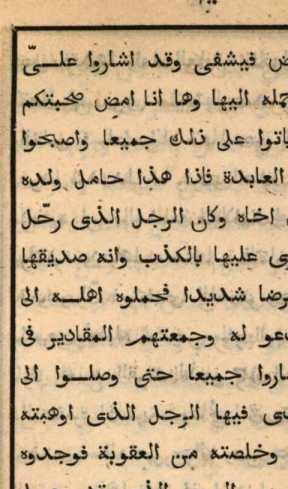 فيشفى وقد اشاروا علىّ
اليها وها انا امضِ صحبتكم
باتوا على ذلك جميعا واصبحوا
العابدة فاذا هذا حامل ولده
اخاه وكان الرجل الذى رحّل
عليها بالكذب وانه صديقها
شديدا فحملوه اهله الى
له وجمعتهم المقادير فى
جميعا حتى وصلوا الى
فيها الرجل الذى اوهبته
وخلصته من العقوبة فوجدوه